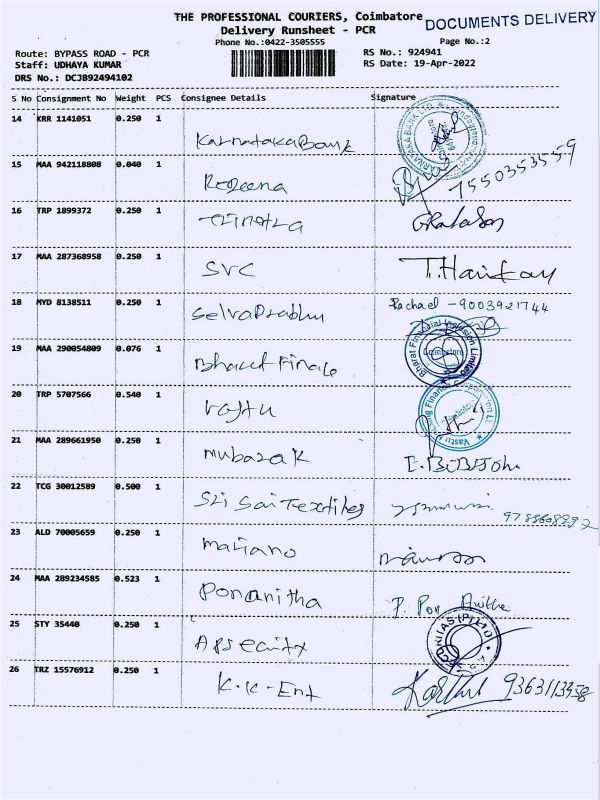 THE PROFESSIONAL COURIERS, Coimbatore
DOCUMENTS DELIVERY
Delivery Runsheet - PCR
Phone No.:0422-3505555
Page No.:2
Route: BYPASS ROAD - PCR
RS No.: 924941
Staff: UDHAYA KUMAR
RS Date: 19-Apr-2022
DRS No.: DCJ892494102
S No Consignment No Weight PCS Consignee Details Signature
14 KRR 1141051 0.250 1
Karnataka Bank
15 MAA 942118808 0.040 1
Rozeena
7550353559
16 TRP 1899372 0.250 1
17 MAA 287368958 0.250 1
SVC
18 MYD 8138511 0.250 1 Rachael - 9003921744
Selvaprabhu
19 MAA 290054809 0.076 1
Bharat Financial Inclusion Limited
Coimbatore
20 TRP 5707566 0.540 1
21 MAA 289661950 0.250 1
Mubarak
22 TCG 30012589 0.500 1
Sri Sai Textiles
23 ALD 70005659 0.250 1
Mariano
24 MAA 289234585 0.523 1
Ponanitha P. Pon Anitha
25 STY 35440 0.250 1
26 TRZ 15576912 0.250 1
K.K-Ent